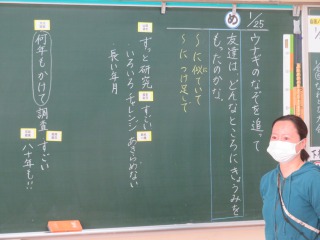 1/25
ウナギのなぞを追って
め
友達は、どんなところにきょうみを
もったのかな。
〜に似ていて
〜につけ足して
ずっと研究 すごい
いろいろ チャレンジ あきらめない
長い年月
何年もかけて調査 すごい
八十年も!!